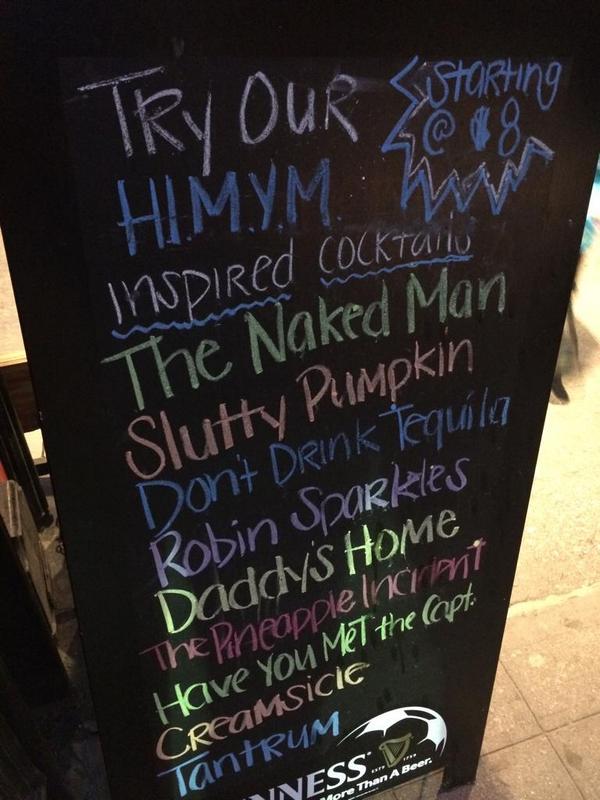 TRY OUR
STARTING
@ $8
H.I.M.Y.M.
INSPIRED COCKTAILS
The Naked Man
Slutty Pumpkin
Don't DRINK Tequila
Robin Sparkles
Daddy's Home
The Pineapple Incident
Have you MeT the Capt.
CREAMSICLE
TANTRUM
NNESS
ESTD 1759
More Than A Beer.